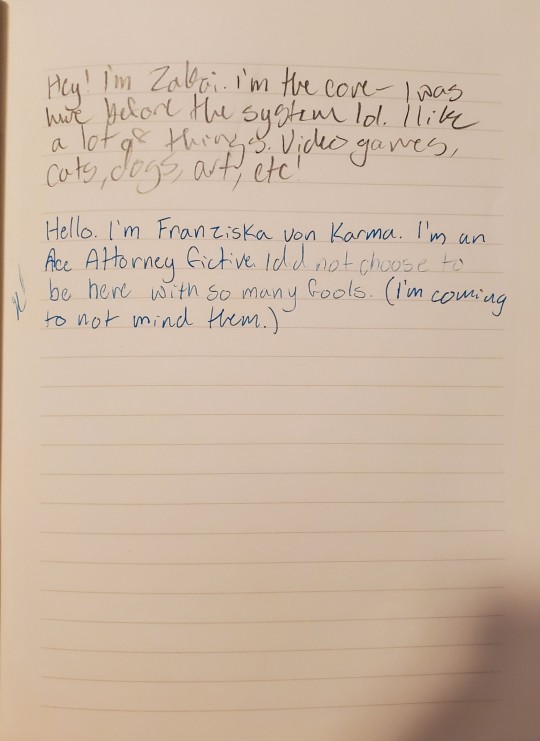 Hey! I'm Zabai. I'm the core- I was
here before the system lol. I like
a lot of things. Video games,
cats, dogs, art, etc!
Hello. I'm Franziska von Karma. I'm an
Ace Attorney fictive. I did not choose to
be here with so many fools. (I'm coming
to not mind them.)